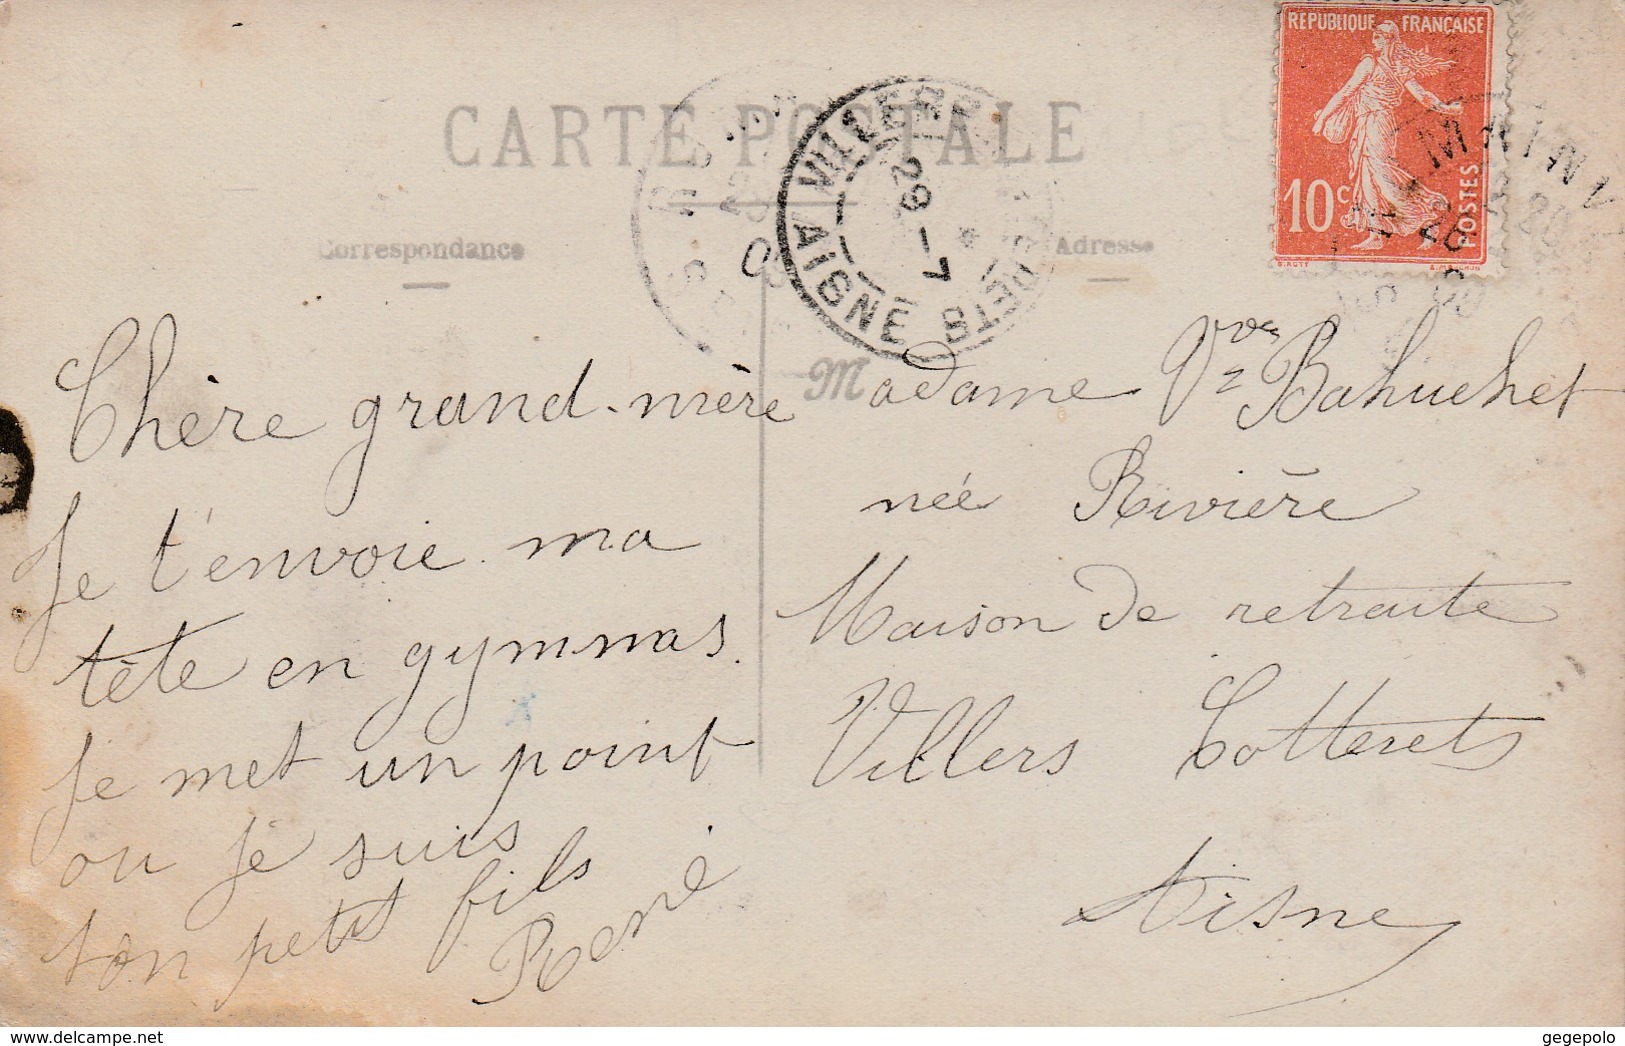 RÉPUBLIQUE FRANÇAISE
10c
POSTES
CARTE POSTALE
VILLERS COTTERETS
29 - 7
AISNE
Correspondance
Adresse
Chère grand-mère
Je t'envoie ma
tête en gymnas.
Je met un point
ou je suis
ton petit fils
René
Madame Vve Bahuchet
née Rivière
Maison de retraite
Villers Cotterets
Aisne
www.delcampe.net
gegepolo